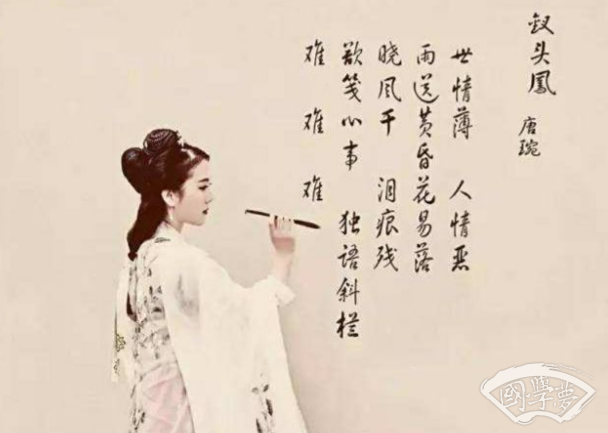 钗头凤
唐琬
世情薄 人情恶
雨送黄昏花易落
晓风干 泪痕残
欲笺心事 独语斜栏
难 难 难
國學夢